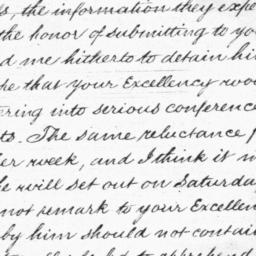 the information they expe
the honor of submitting to yo
d me hitherto to detain hi
he that your Excellency wou
ering into serious conference
ts. The same reluctance
er week, and I think it
he will set out on Saturda
not remark to your Excellen
by him should not contai
to apprehend